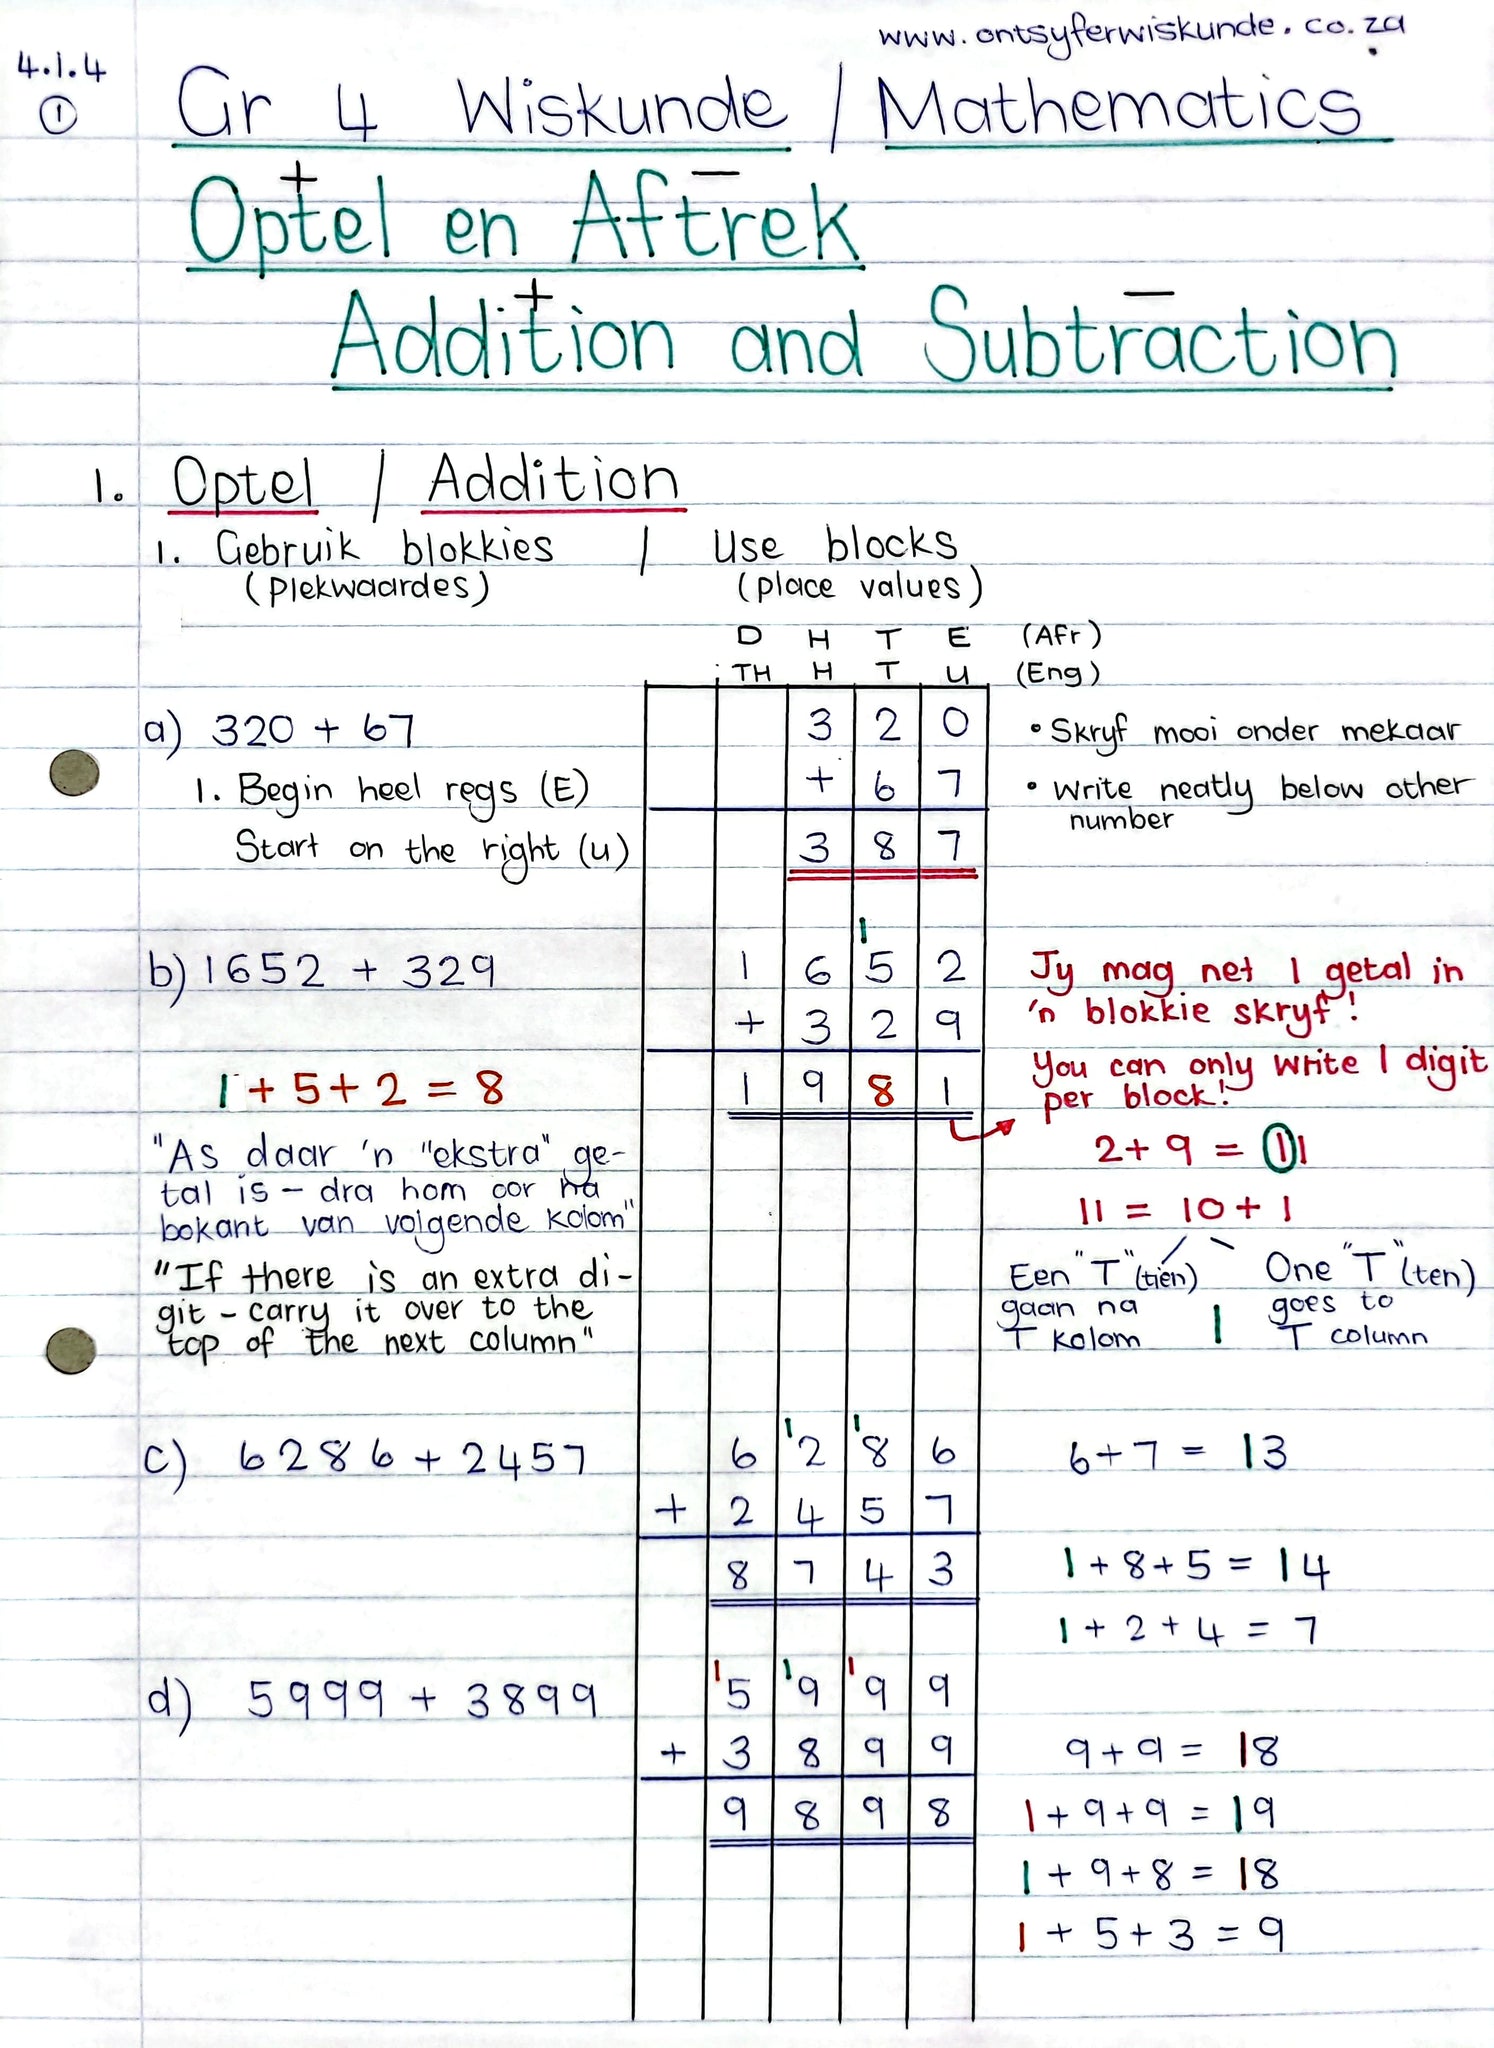 www.ontsyferwiskunde.co.za
4.1.4
①
Gr 4 Wiskunde / Mathematics
+ −
Optel en Aftrek
+ −
Addition and Subtraction
1. Optel / Addition
1. Gebruik blokkies / Use blocks
(Plekwaardes) (place values)
D H T E (Afr)
TH H T U (Eng)
a) 320 + 67
3 2 0
• Skryf mooi onder mekaar
1. Begin heel regs (E)
+ 6 7
• Write neatly below other
number
Start on the right (U)
3 8 7
1
b) 1652 + 329
1 6 5 2
+ 3 2 9
1 9 8 1
Jy mag net 1 getal in
'n blokkie skryf!
You can only write 1 digit
per block!
1 + 5 + 2 = 8
2 + 9 = 11
11 = 10 + 1
"As daar 'n "ekstra" ge-
tal is – dra hom oor na
bokant van volgende kolom"
"If there is an extra di-
git – carry it over to the
top of the next column"
Een "T" (tien)
gaan na
T kolom
1
One "T" (ten)
goes to
T column
1 1
c) 6286 + 2457
6 2 8 6
6 + 7 = 13
+ 2 4 5 7
8 7 4 3
1 + 8 + 5 = 14
1 + 2 + 4 = 7
1 1 1
d) 5999 + 3899
5 9 9 9
+ 3 8 9 9
9 + 9 = 18
9 8 9 8
1 + 9 + 9 = 19
1 + 9 + 8 = 18
1 + 5 + 3 = 9